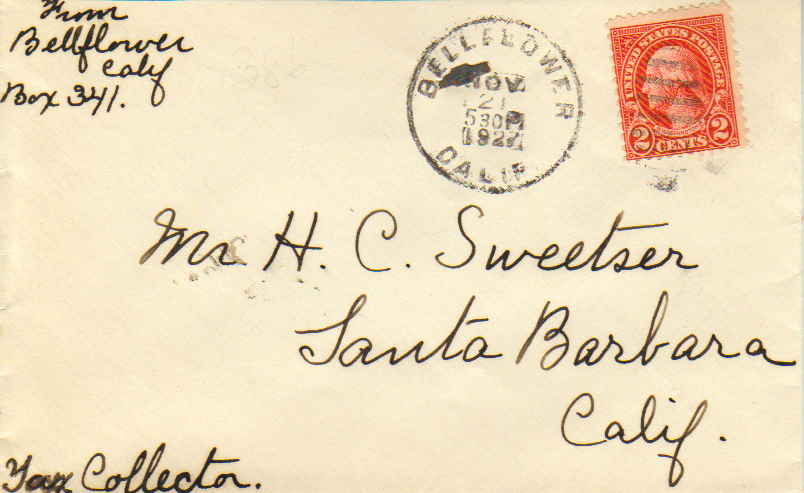 From
Bellflower
Calif
Box 341.
BELLFLOWER
NOV
21
530P
1927
CALIF.
UNITED STATES POSTAGE
2 CENTS 2
Mr. H. C. Sweetser
Santa Barbara
Calif.
Tax Collector.